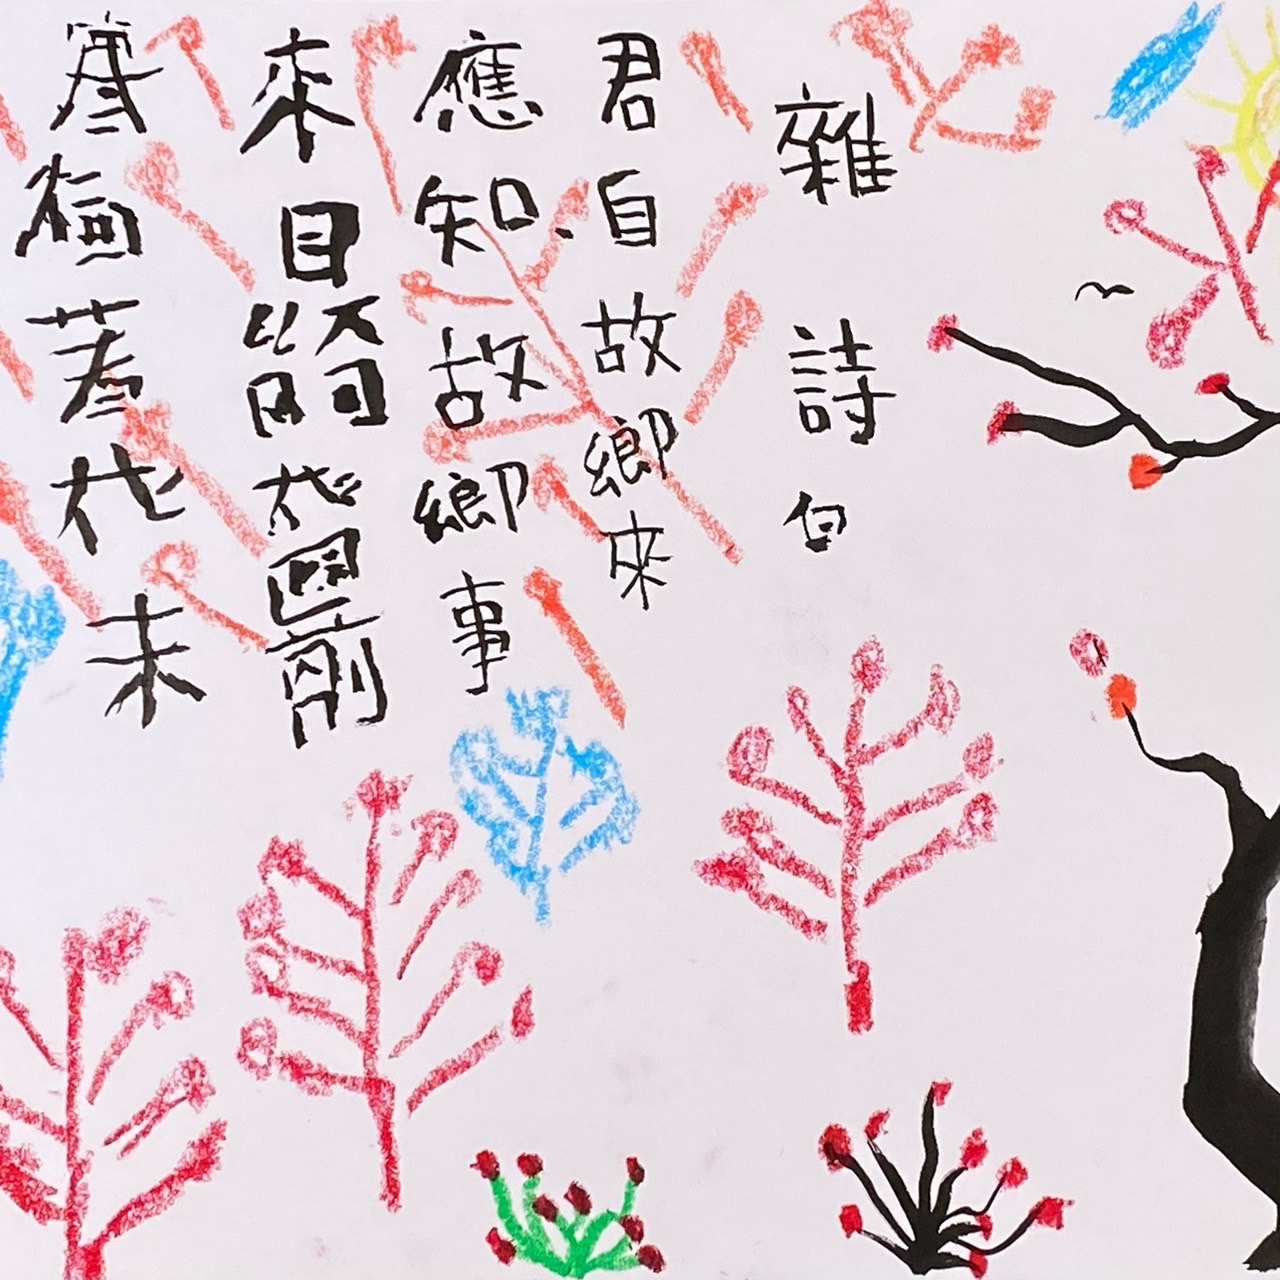 雜詩
君自故鄉來
應知故鄉事
來日綺窗前
寒梅著花未